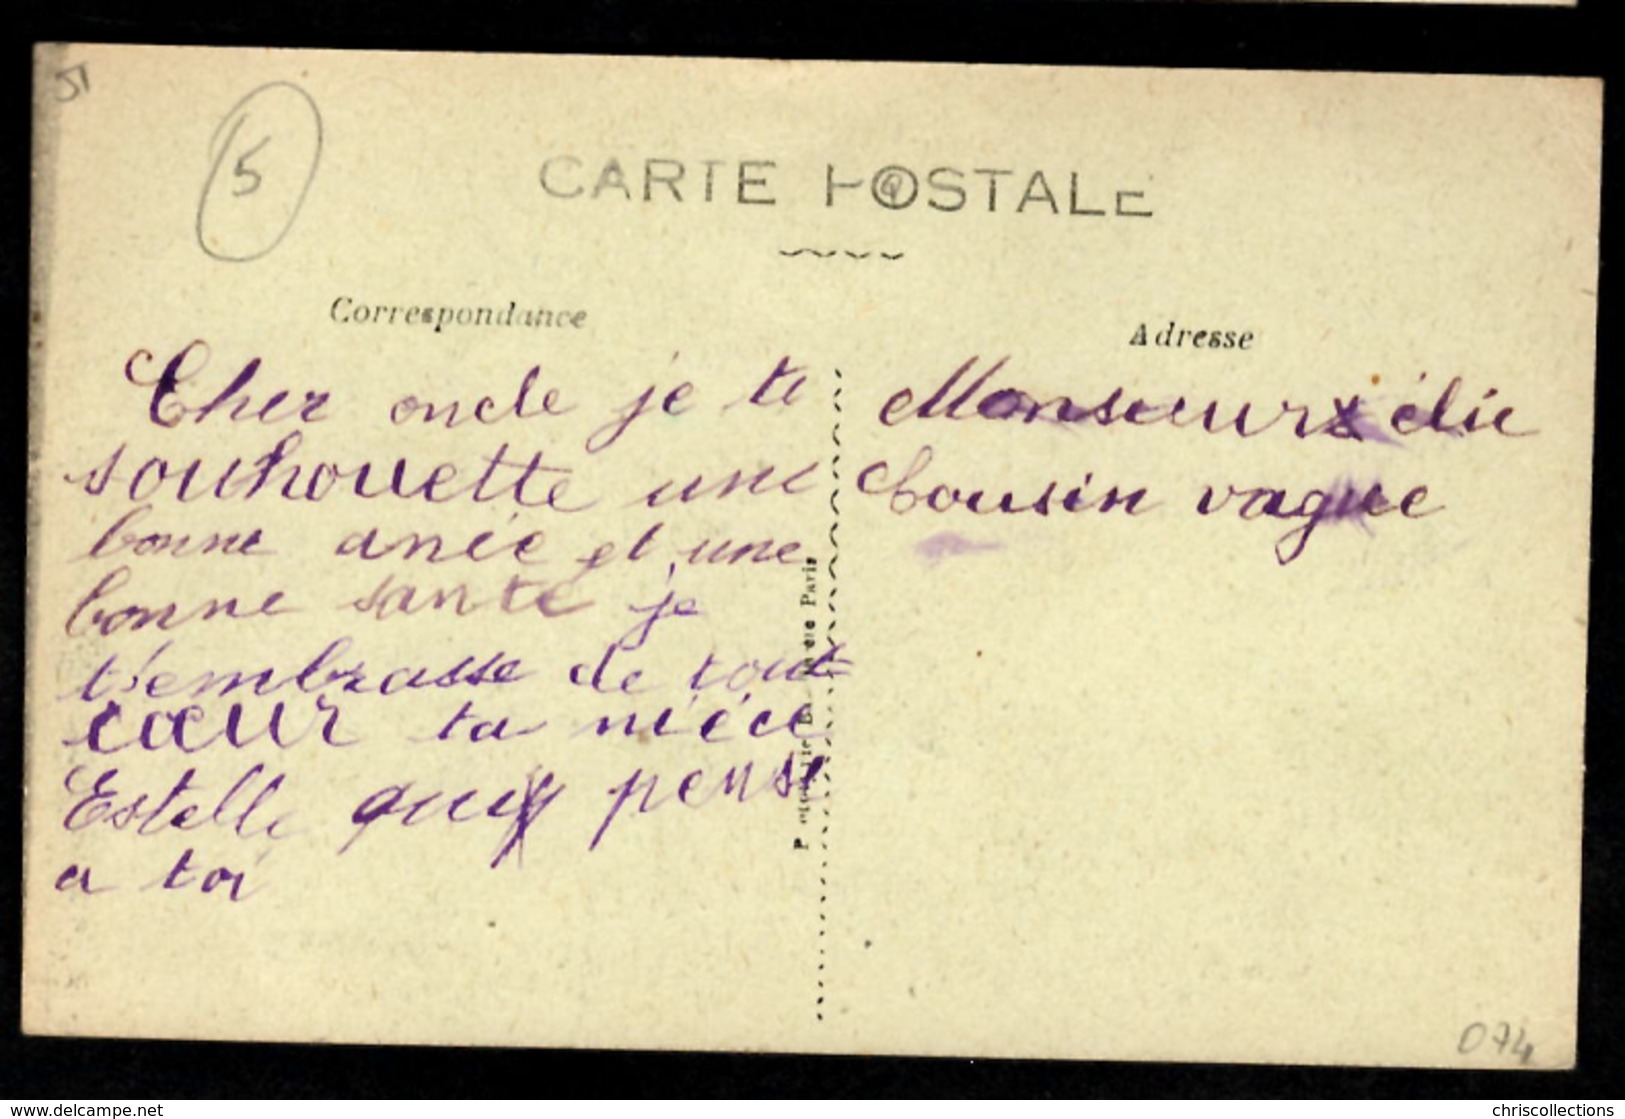 51
5
CARTE POSTALE
Correspondance
Cher oncle je te
souhouette une
bonne anée et une
bonne santé je
t'embrasse de tout
cœur ta niéce
Estelle quy pense
a toi
Paris
Adresse
Monsieur élie
Cousin vague
074
delcampe.net
chriscollections